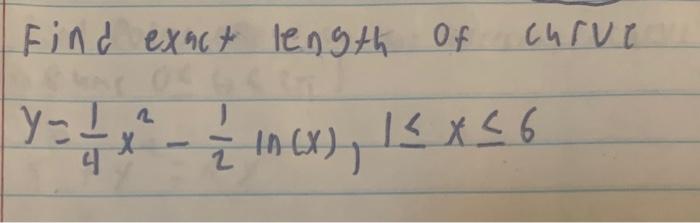 Find exact length of curve
y = 1/4 x² - 1/2 ln(x), 1 ≤ x ≤ 6